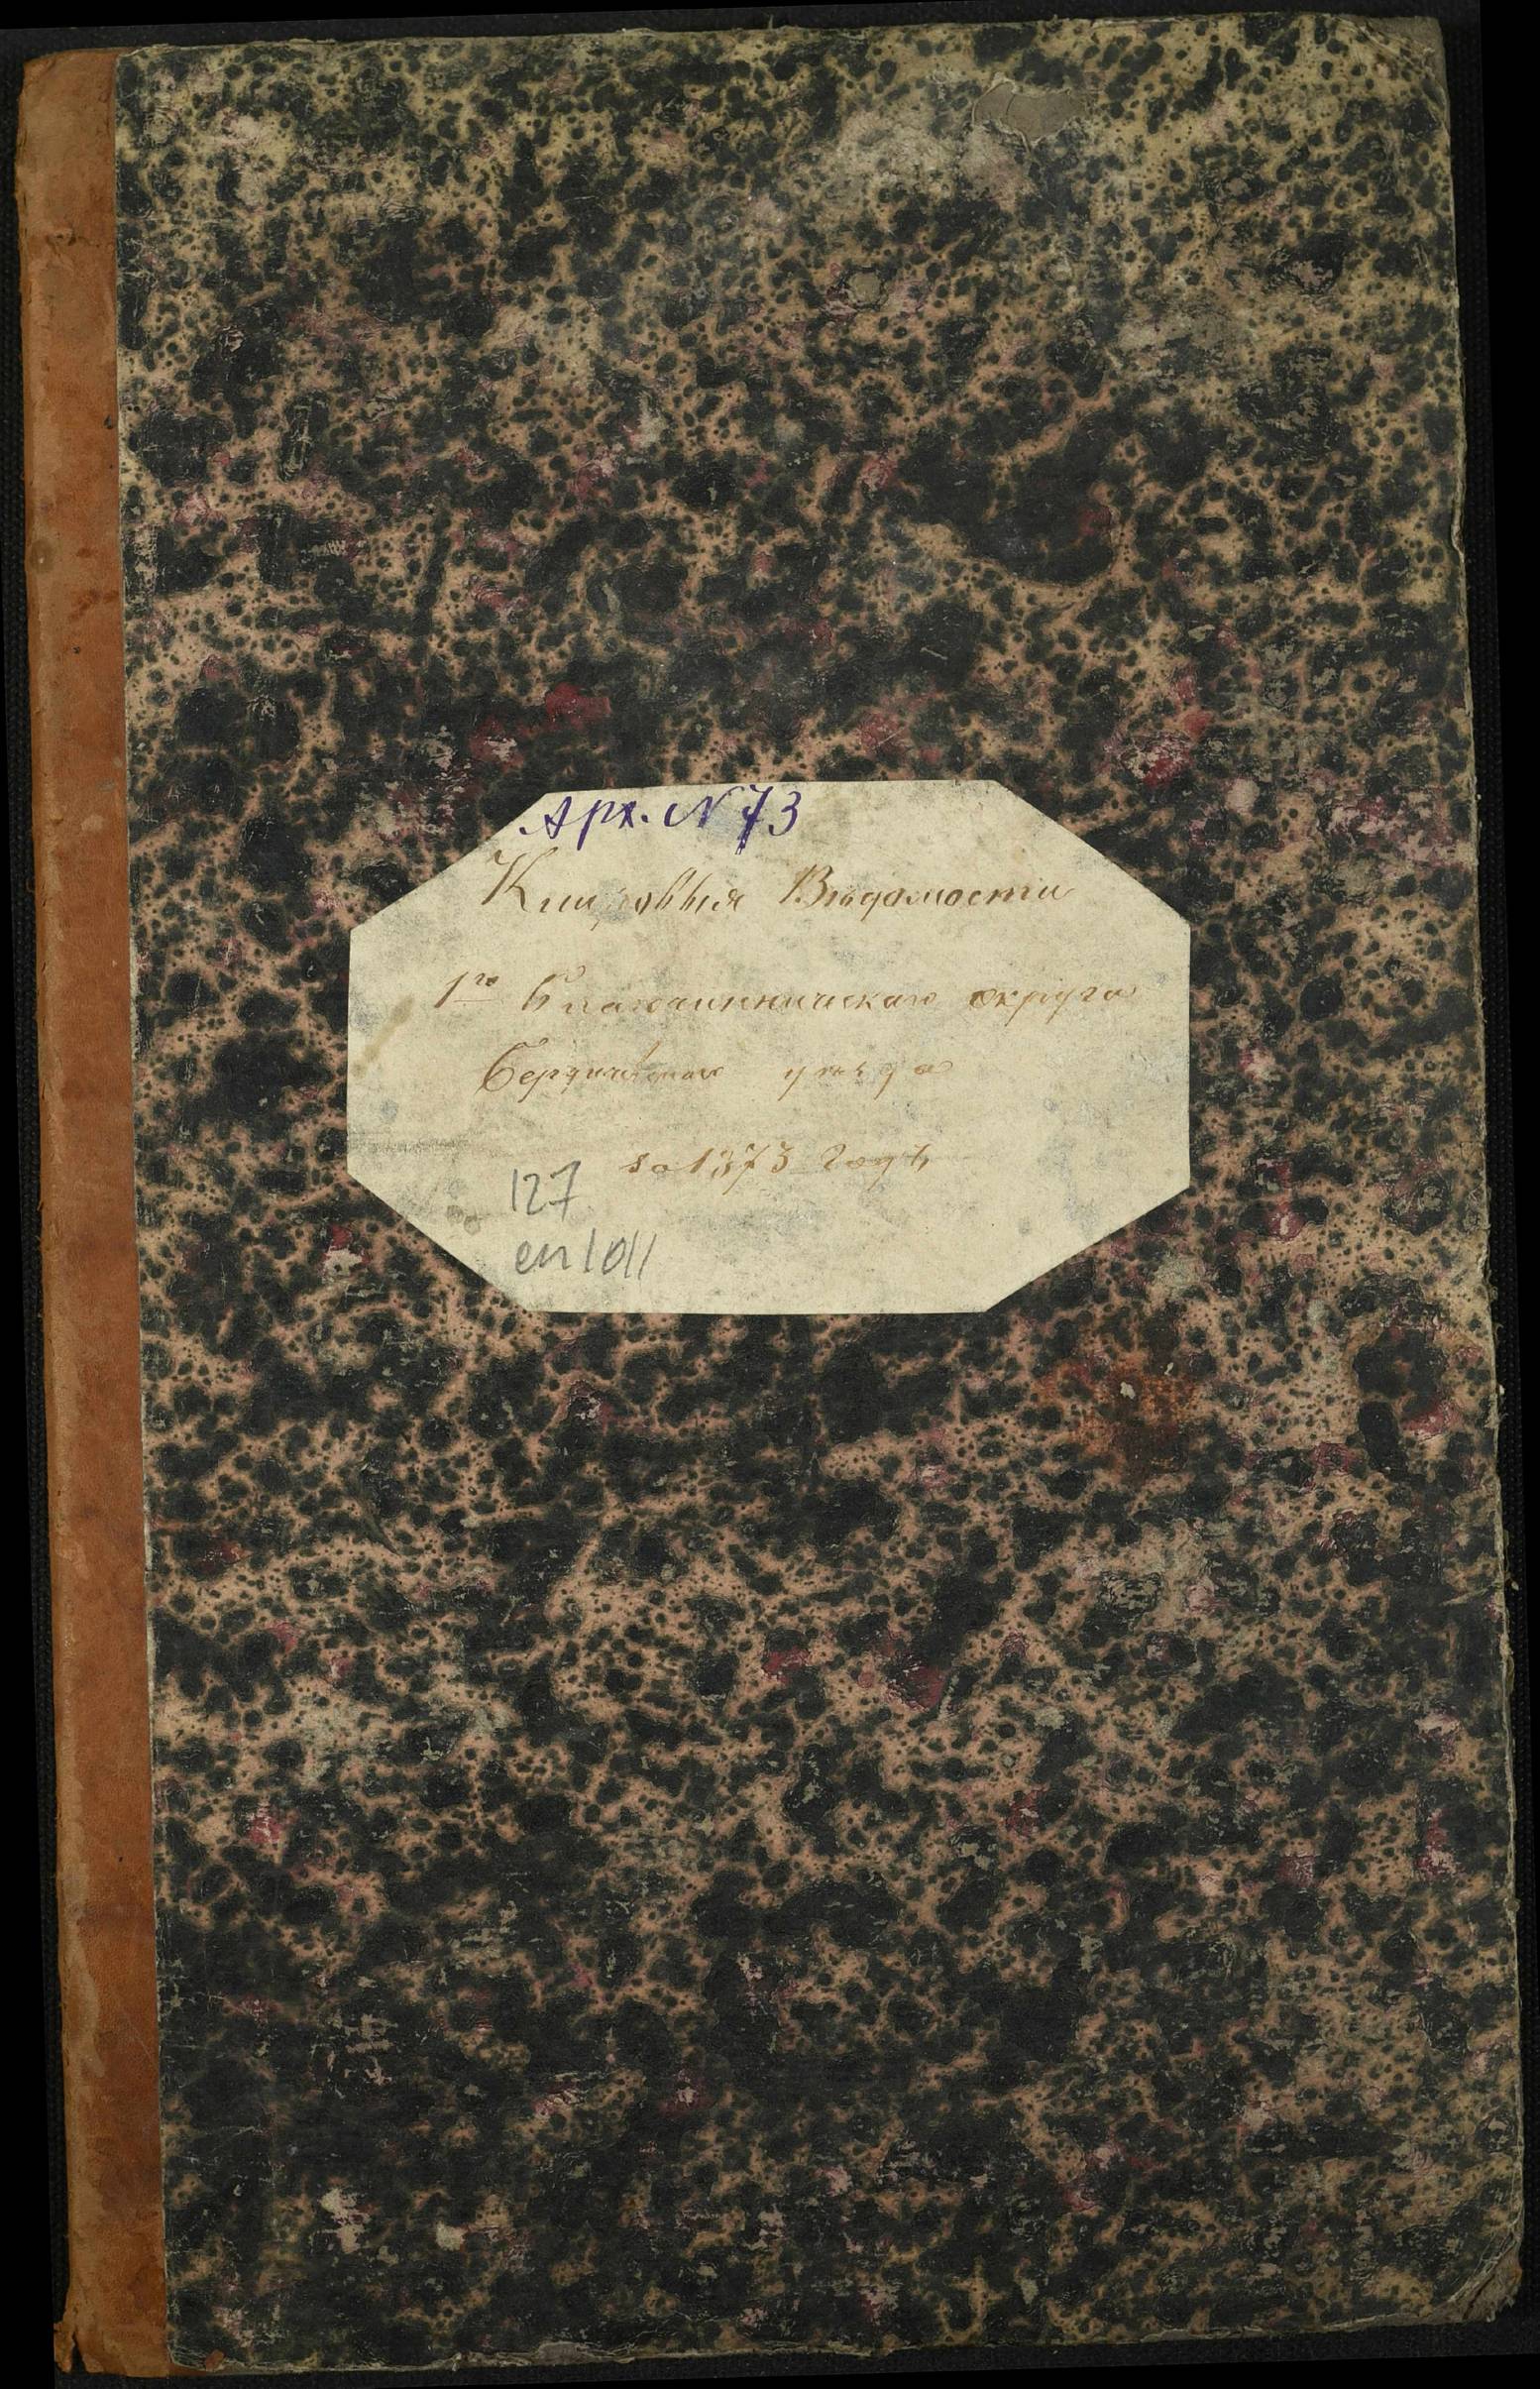 Арх. N 73
Клировыя Вѣдомости
1го Благочинническаго округа
Бердичевскаго уѣзда
за 1873 годъ
127
оп 1011